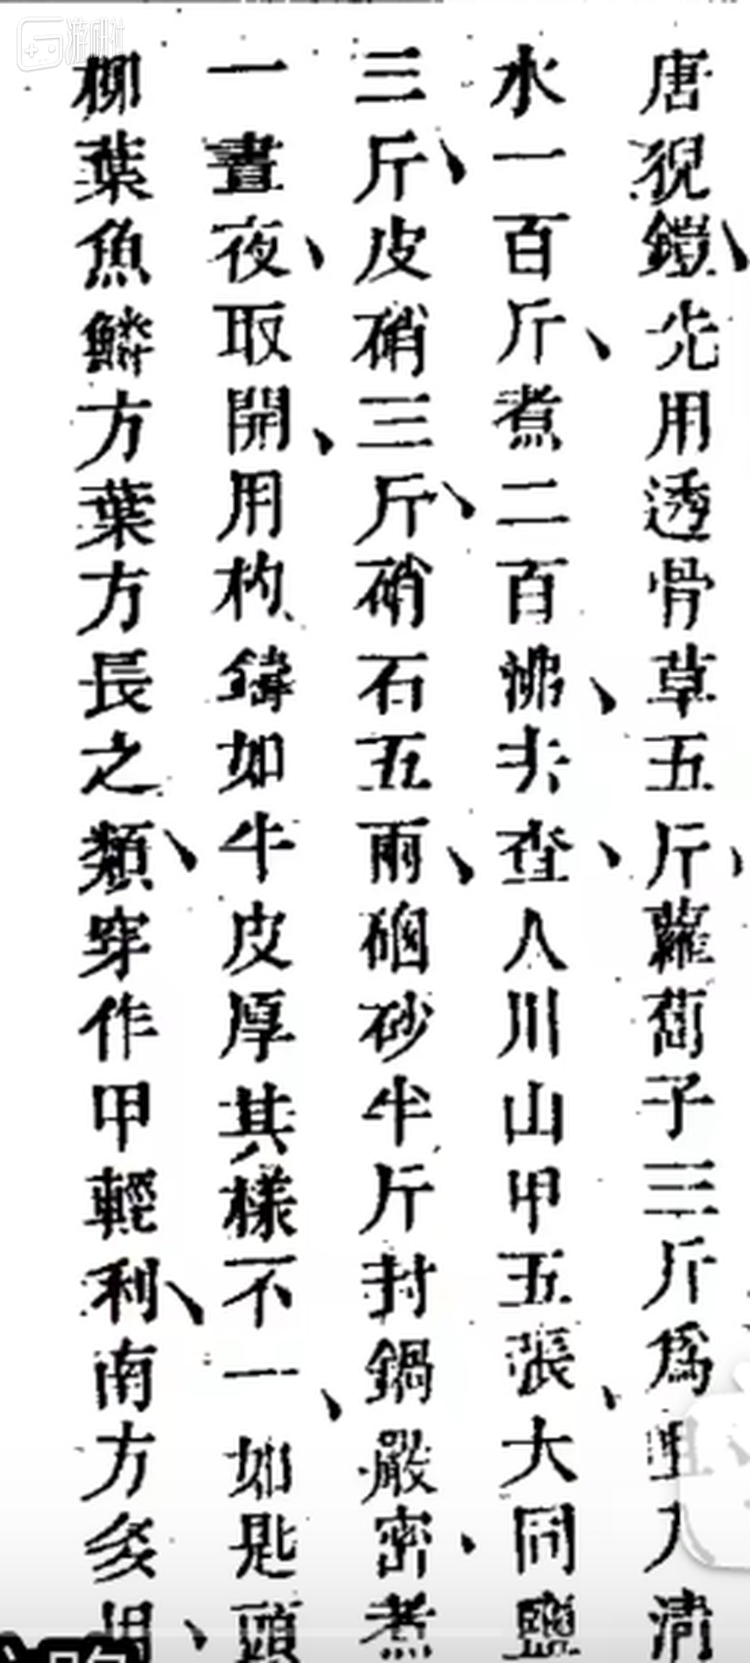 唐猊鎧、先用透骨草五斤、蘿蔔子三斤爲 清
水一百斤、煮二百沸、去查、入川山甲五張、大同鹽
三斤、皮硝三斤、硝石五兩、硇砂半斤封鍋嚴密、煮
一晝夜、取開、用杓鑄如牛皮厚其樣不一、如匙頭
柳葉魚鱗方葉方長之類、穿作甲輕利、南方多用、